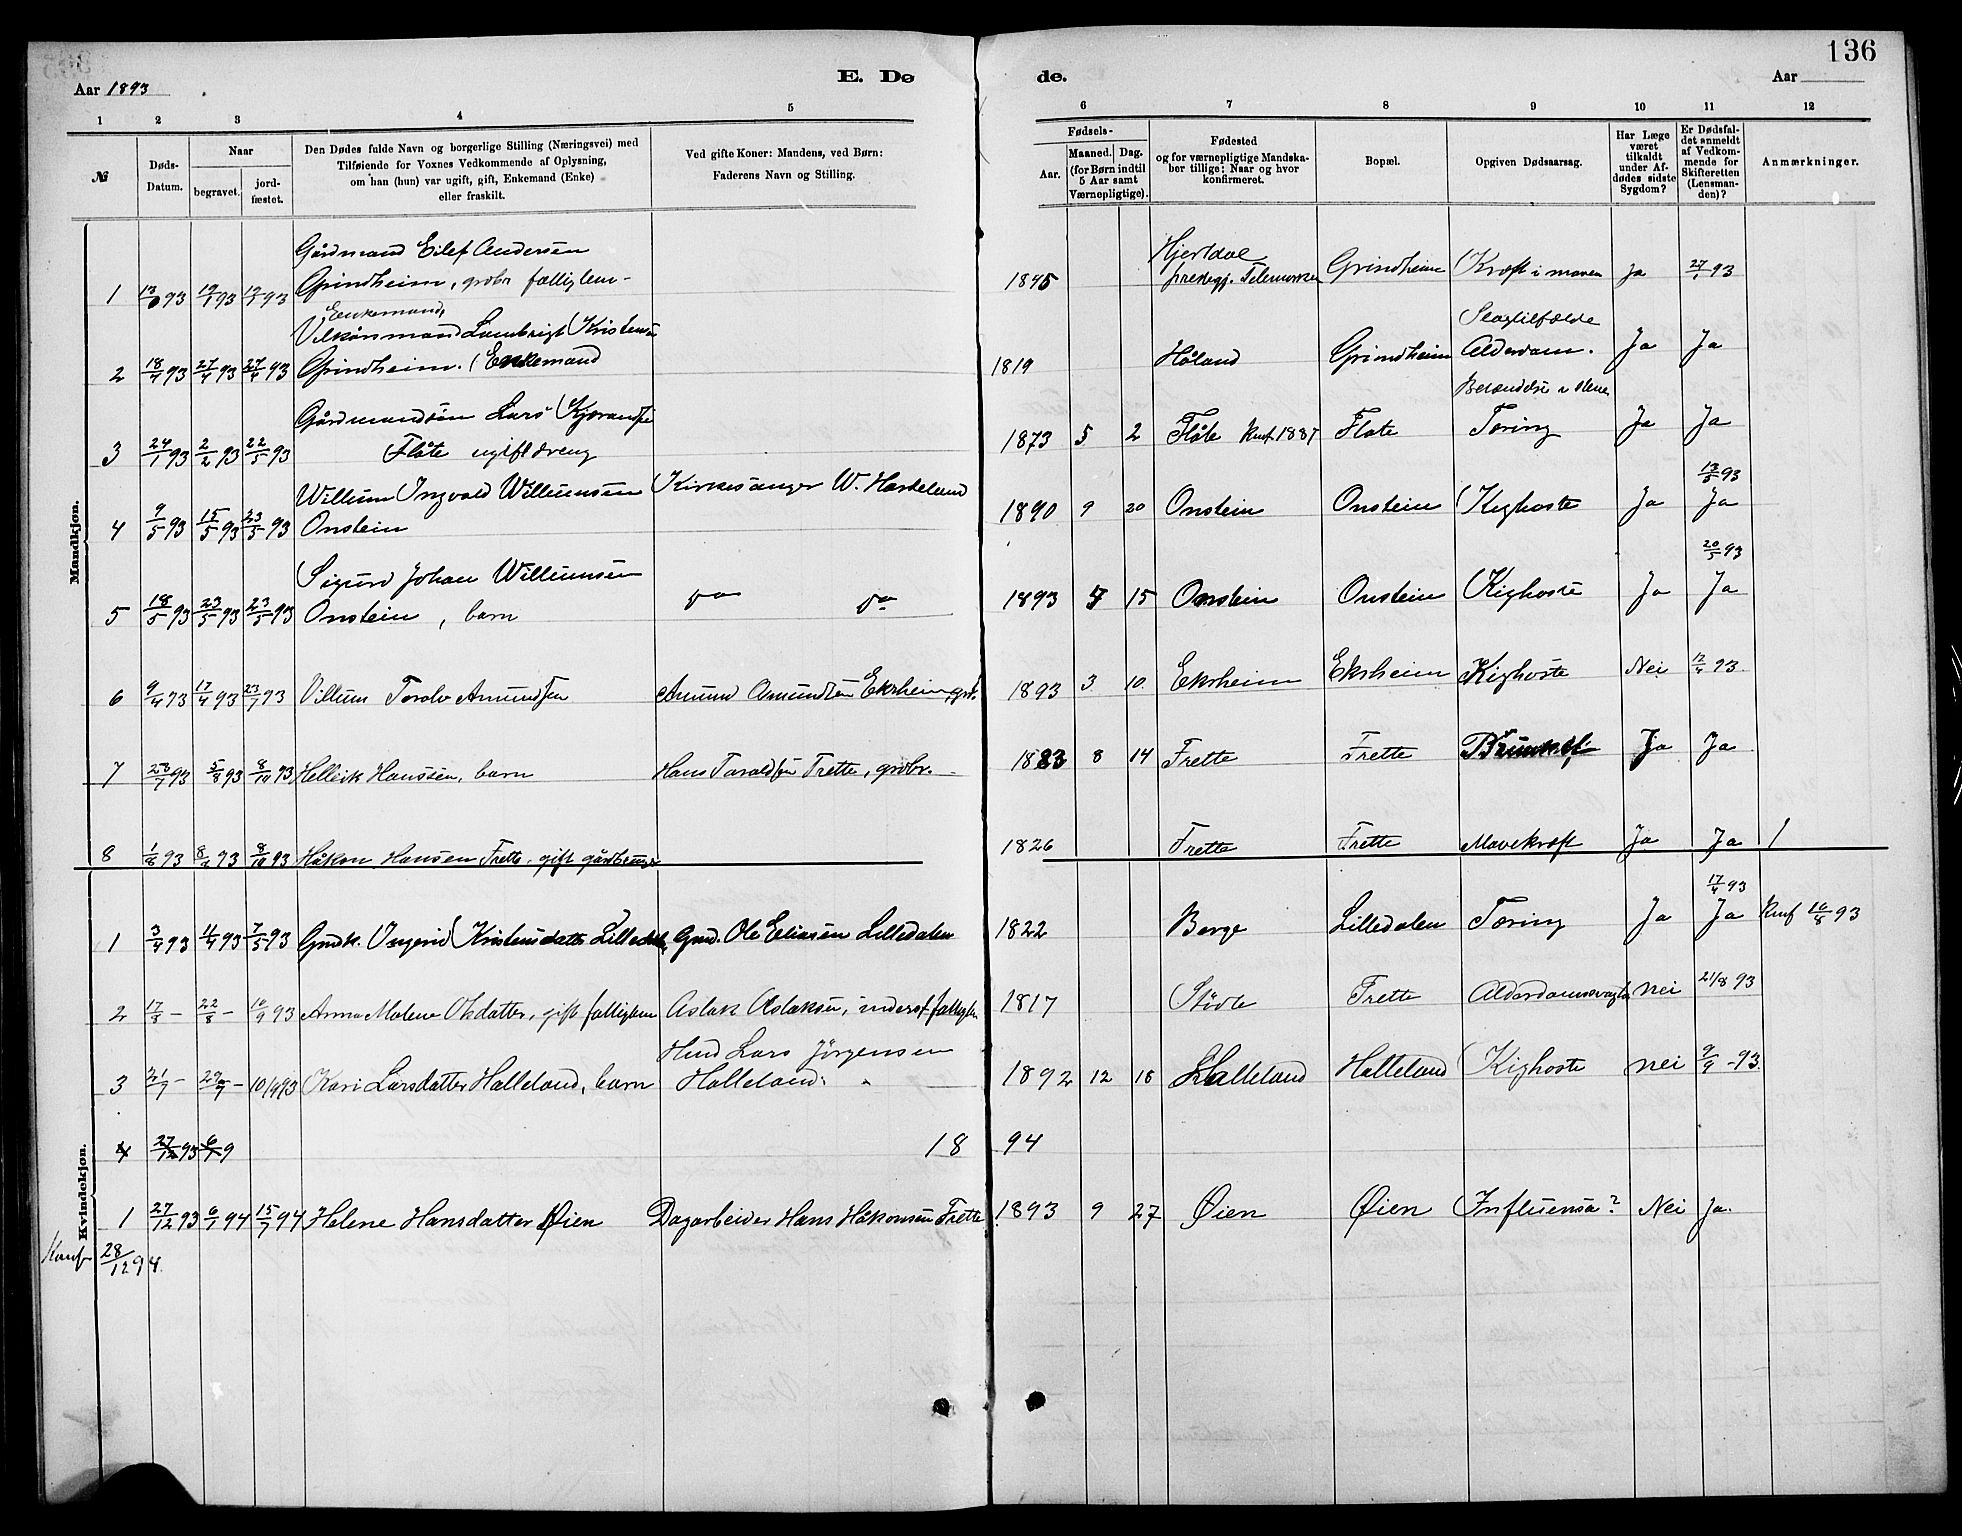 136
Aar 1893
E. Dø
de.
Aar
1 2 3 4 5 6 7 8 9 10 11 12
№
Døds-Datum.
Naar
begravet.
jord-fæstet.
Den Dødes fulde Navn og borgerlige Stilling (Næringsvei) med
Tilføiende for Voxnes Vedkommende af Oplysning,
om han (hun) var ugift, gift, Enkemand (Enke)
eller fraskilt.
Ved gifte Koner: Mandens, ved Børn:
Faderens Navn og Stilling.
Fødsels-
Aar.
Maaned. Dag.
(for Børn indtil
5 Aar samt
Værnepligtige).
Fødested
og for værnepligtige Mandska-
ber tillige: Naar og hvor
konfirmeret.
Bopæl.
Opgiven Dødsaarsag.
Har Læge
været
tilkaldt
under Af-
dødes sidste
Sygdom?
Er Dødsfal-
det anmeldt
af Vedkom-
mende for
Skifteretten
(Lensman-
den)?
Anmærkninger.
Mandkjøn.
Gårdmand Eilef Andersen
1 19/1 93 Grindheim, grdbr fattiglem- 1845 Hjertdal præstegj. Telemarken Grindheim Kræft i maven ja 27/1 93
Enkemand,
Vilkårsmand Lambrigt Kristensen
2 18/4 93 27/4 93 27/4 93 Grindheim. (Enkemand 1819 Håland Grindheim Slagtilfælde Alderdom. Ja Ja
Gårdmandsøn Lars
3 24/1 93 2/2 93 22/5 93 Flåte ugift dreng 1873 5 2 Flåte Konf. 1887 Flåte Tæring Ja Ja
Willum Ingvald Willumsen Kirkesanger W.
4 9/5 93 15/5 93 23/5 93 Onstein 1890 9 20 Onstein Onstein Kighoste Ja Ja
Sigurd Johan Willumsen
5 18/5 93 23/5 93 23/5 93 Onstein, barn do do 1893 15 Onstein Onstein Kighoste Ja 20/5 93 Ja
6 9/4 93 17/4 93 23/7 93 Villum Torolv Amundsen Amund Amundsen Ekrheim, 1893 3 10 Ekrheim Ekrheim Kighoste Nei 12/4 93
7 28/7 93 5/8 93 8/10 93 Hellik Hanssen, barn Hans Taraldsen Frette, grdbr. 1883 8 14 Frette Frette Ja Ja
8 1/8 93 8/10 93 Håkon Hansen Frette, gift gårdbruger 1826 Frette Frette Mavekræft Ja Ja
Kvindekjøn.
1 3/4 93 11/4 93 7/5 93 Gmdk. Ingerid Kristensdatter Lilledal Gmd. Ole Eliasen Lilledalen 1822 Berge Lilledalen Tæring Ja 17/4 93 Ja Konf 10/8 93
2 17/8 - 22/8 - 10/9 93 Anna Malene Olsdatter, gift fattiglem Aslak Aslaksen, 1817 Stødle Frette nei 21/8 93
Hmd Lars Jörgensen
3 29/7 - 10/9 93 Kari Larsdatter Halleland, barn Halleland 1892 12 18 Halleland Halleland Kighoste nei 9/9 - 93.
4 27/12 93 6/1 9
1894
1 27/12 93 6/1 94 15/7 94 Helene Hansdatter Øien Dagarbeider Hans Håkonsen Frette 1893 9 27 Øien Øien Influensa? Nei Ja.
Konf 28/12 94.